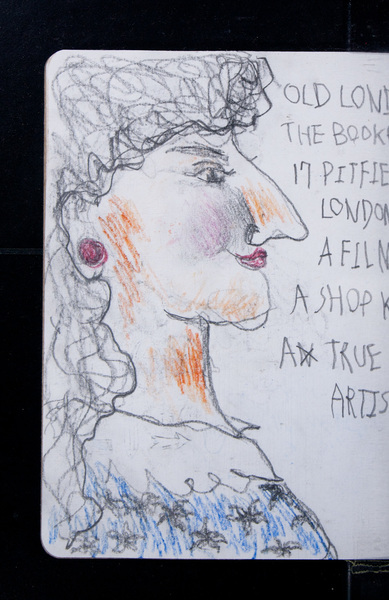 OLD LOND
THE BOOK
17 PITFIE
LONDON
A FILM
A SHOP K
A TRUE
ARTIS